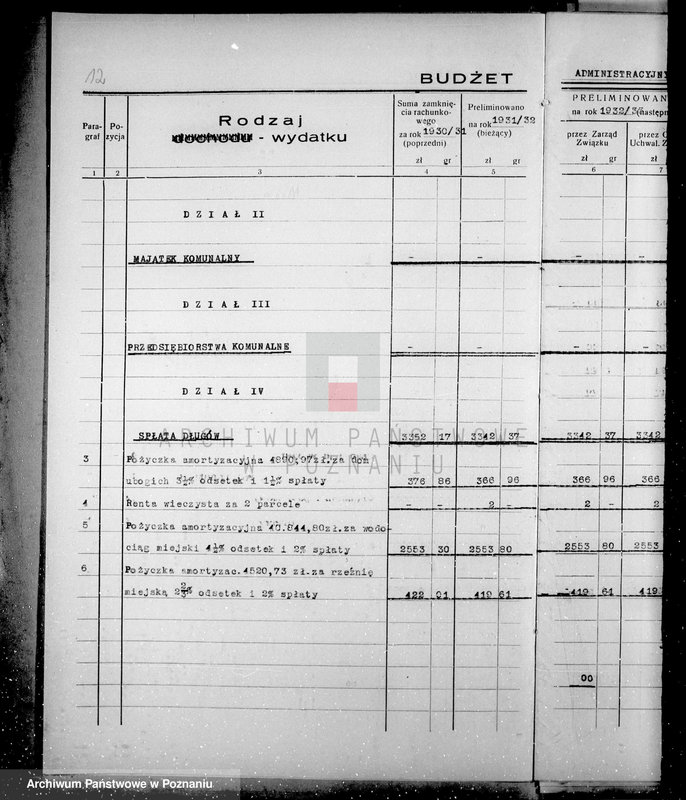 12
BUDŻET
ADMINISTRACYJNY
Para-
graf
Po-
zycja
Rodzaj
dochodu - wydatku
Suma zamknię-
cia rachunko-
wego
za rok 1930/31
(poprzedni)
zł gr
Preliminowano
na rok 1931/32
(bieżący)
zł gr
PRELIMINOWAN
na rok 1932/33 (następn
przez Zarząd
Związku
zł gr
przez
Uchwal.
zł
1 2 3 4 5 6 7
DZIAŁ II
MAJATEK KOMUNALNY - - -
DZIAŁ III
PRZEDSIĘBIORSTWA KOMUNALNE - - -
DZIAŁ IV
SPŁATA DŁUGÓW 3352 17 3342 37 3342 37 3342
3 Pożyczka amortyzacyjna zł.za dom
ubogich 3½% odsetek i 1½% spłaty 376 86 366 96 366 96 366
4 Renta wieczysta za 2 parcele - - 2 - 2 - 2
5 Pożyczka amortyzacyjna 40.844,80zł.za wodo-
ciąg miejski 4½% odsetek i 2% spłaty 2553 30 2553 80 2553 80 2553
6 Pożyczka amortyzac.4520,73 zł.za rzeźnię
miejską 2⅔% odsetek i 2% spłaty 422 01 419 61 419 61 419
00
ARCHIWUM PAŃSTWOWE
W POZNANIU
Archiwum Państwowe w Poznaniu